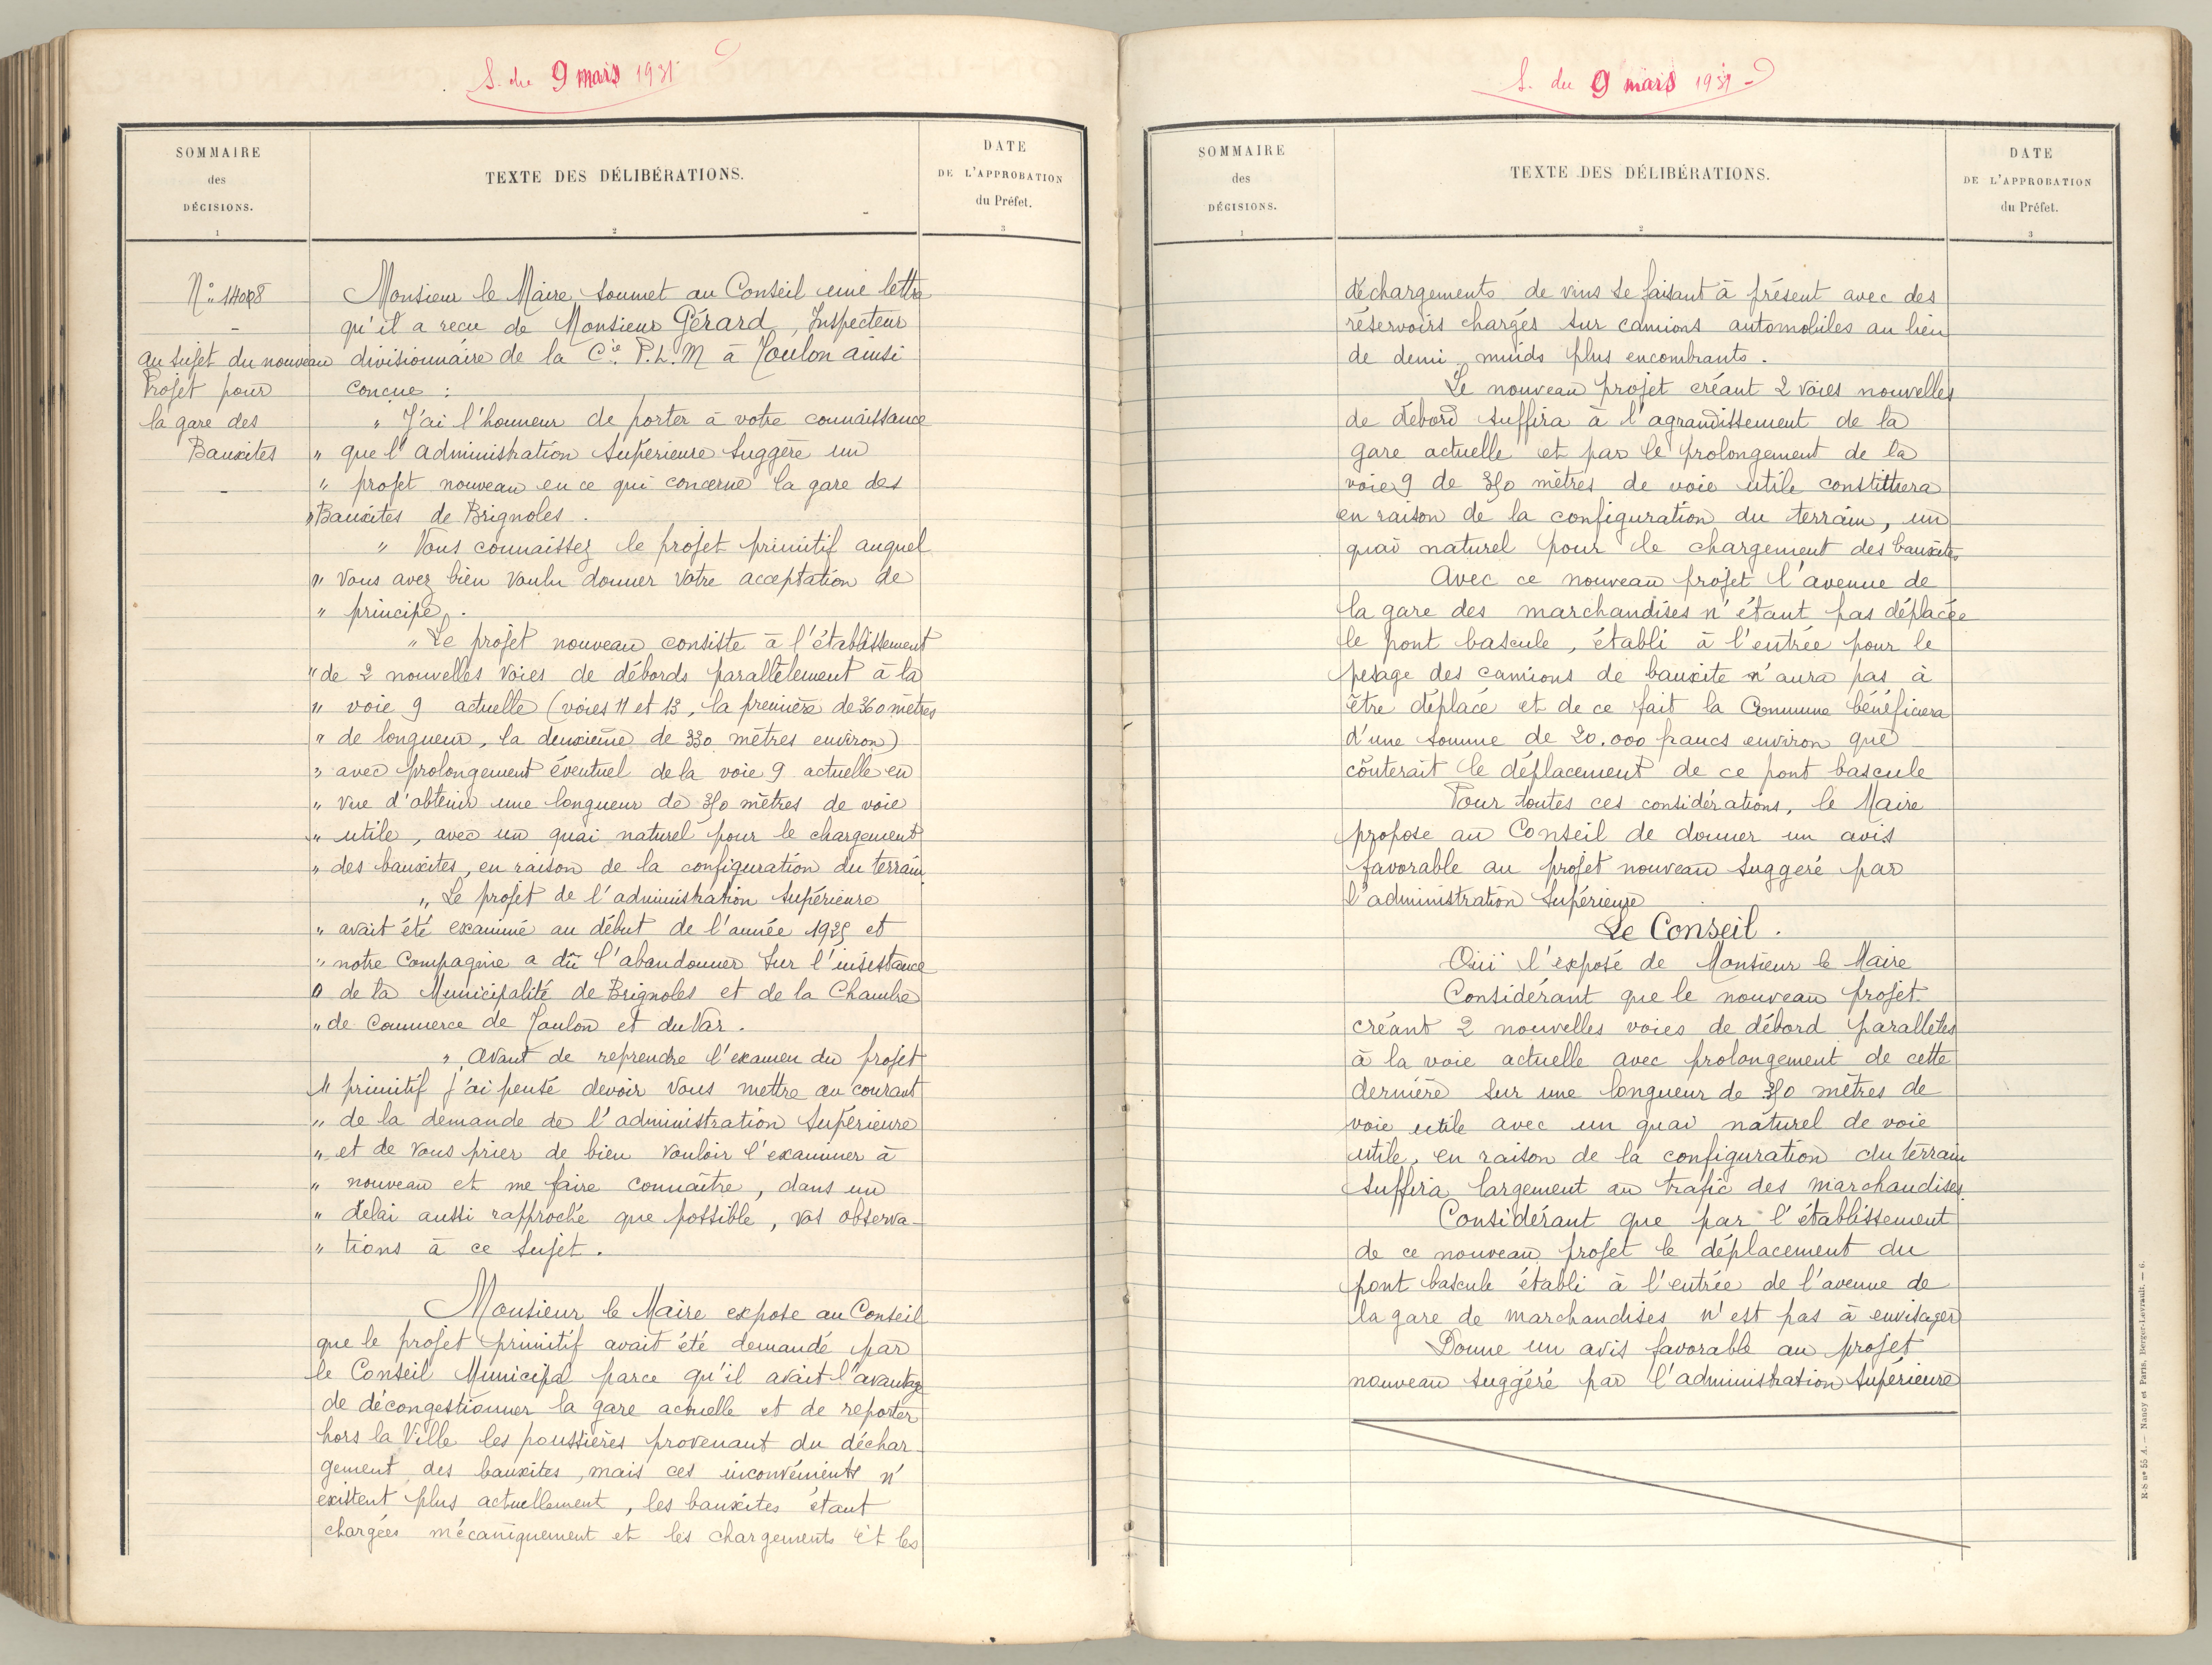 S. du 9 mars 1931
SOMMAIRE
des
DÉCISIONS.
1
TEXTE DES DÉLIBÉRATIONS.
2
DATE
DE L'APPROBATION
du Préfet.
3
au sujet du nouveau
Projet pour
la gare des
Bauxites
Monsieur le Maire soumet au Conseil une lettre
qu'il a reçu de Monsieur Gérard, Inspecteur
divisionnaire de la Cie P.L.M à Toulon ainsi
conçue :
" J'ai l'honneur de porter à votre connaissance
" que l'administration supérieure suggère un
" projet nouveau en ce qui concerne la gare des
" Bauxites de Brignoles.
" Vous connaissez le projet primitif auquel
" vous avez bien voulu donner votre acceptation de
" principe.
" Le projet nouveau consiste à l'établissement
" de 2 nouvelles voies de débords parallèlement à la
" voie 9 actuelle (voies 11 et 13, la première de 360 mètres
" de longueur, la deuxième de 330 mètres environ)
" avec prolongement éventuel de la voie 9 actuelle en
" vue d'obtenir une longueur de mètres de voie
" utile, avec un quai naturel pour le chargement
" des bauxites, en raison de la configuration du terrain
" Le projet de l'administration supérieure
" avait été examiné au début de l'année et
" notre Compagnie a dû l'abandonner sur l'insistance
" de la Municipalité de Brignoles et de la Chambre
" de Commerce de Toulon et du Var.
" Avant de reprendre l'examen du projet
" primitif j'ai pensé devoir vous mettre au courant
" de la demande de l'administration supérieure
" et de vous prier de bien vouloir l'examiner à
" nouveau et me faire connaître, dans un
" délai aussi rapproché que possible, vos observa-
" tions à ce sujet.
Monsieur le Maire expose au Conseil
que le projet primitif avait été demandé par
le Conseil Municipal parce qu'il avait l'avantage
de décongestionner la gare actuelle et de reporter
hors la Ville les poussières provenant du déchar-
gement des bauxites, mais ces inconvénients n'
existent plus actuellement, les bauxites étant
chargées mécaniquement et les chargements et les
S. du 9 mars 1931
SOMMAIRE
des
DÉCISIONS.
1
TEXTE DES DÉLIBÉRATIONS.
2
DATE
DE L'APPROBATION
du Préfet.
3
déchargements de vins se faisant à présent avec des
réservoirs chargés sur camions automobiles au lieu
de demi muids plus encombrants.
Le nouveau projet créant 2 voies nouvelles
de débord suffira à l'agrandissement de la
gare actuelle et par le prolongement de la
voie 9 de mètres de voie utile constituera
en raison de la configuration du terrain, un
quai naturel pour le chargement des bauxites
Avec ce nouveau projet l'avenue de
la gare des marchandises n'étant pas déplacée
le pont bascule, établi à l'entrée pour le
pesage des camions de bauxite n'aura pas à
être déplacé et de ce fait la Commune bénéficiera
d'une somme de 20.000 francs environ que
coûterait le déplacement de ce pont bascule
Pour toutes ces considérations, le Maire
propose au Conseil de donner un avis
favorable au projet nouveau suggéré par
l'administration supérieure
Le Conseil.
Ouï l'exposé de Monsieur le Maire
Considérant que le nouveau projet
créant 2 nouvelles voies de débord parallèles
à la voie actuelle avec prolongement de cette
dernière sur une longueur de mètres de
voie utile avec un quai naturel de voie
utile, en raison de la configuration du terrain
suffira largement au trafic des marchandises.
Considérant que par l'établissement
de ce nouveau projet le déplacement du
pont bascule établi à l'entrée de l'avenue de
la gare de marchandises n'est pas à envisager
Donne un avis favorable au projet
nouveau suggéré par l'administration supérieure
R-S nº 55 A. — Nancy et Paris, Berger-Levrault. — 6.